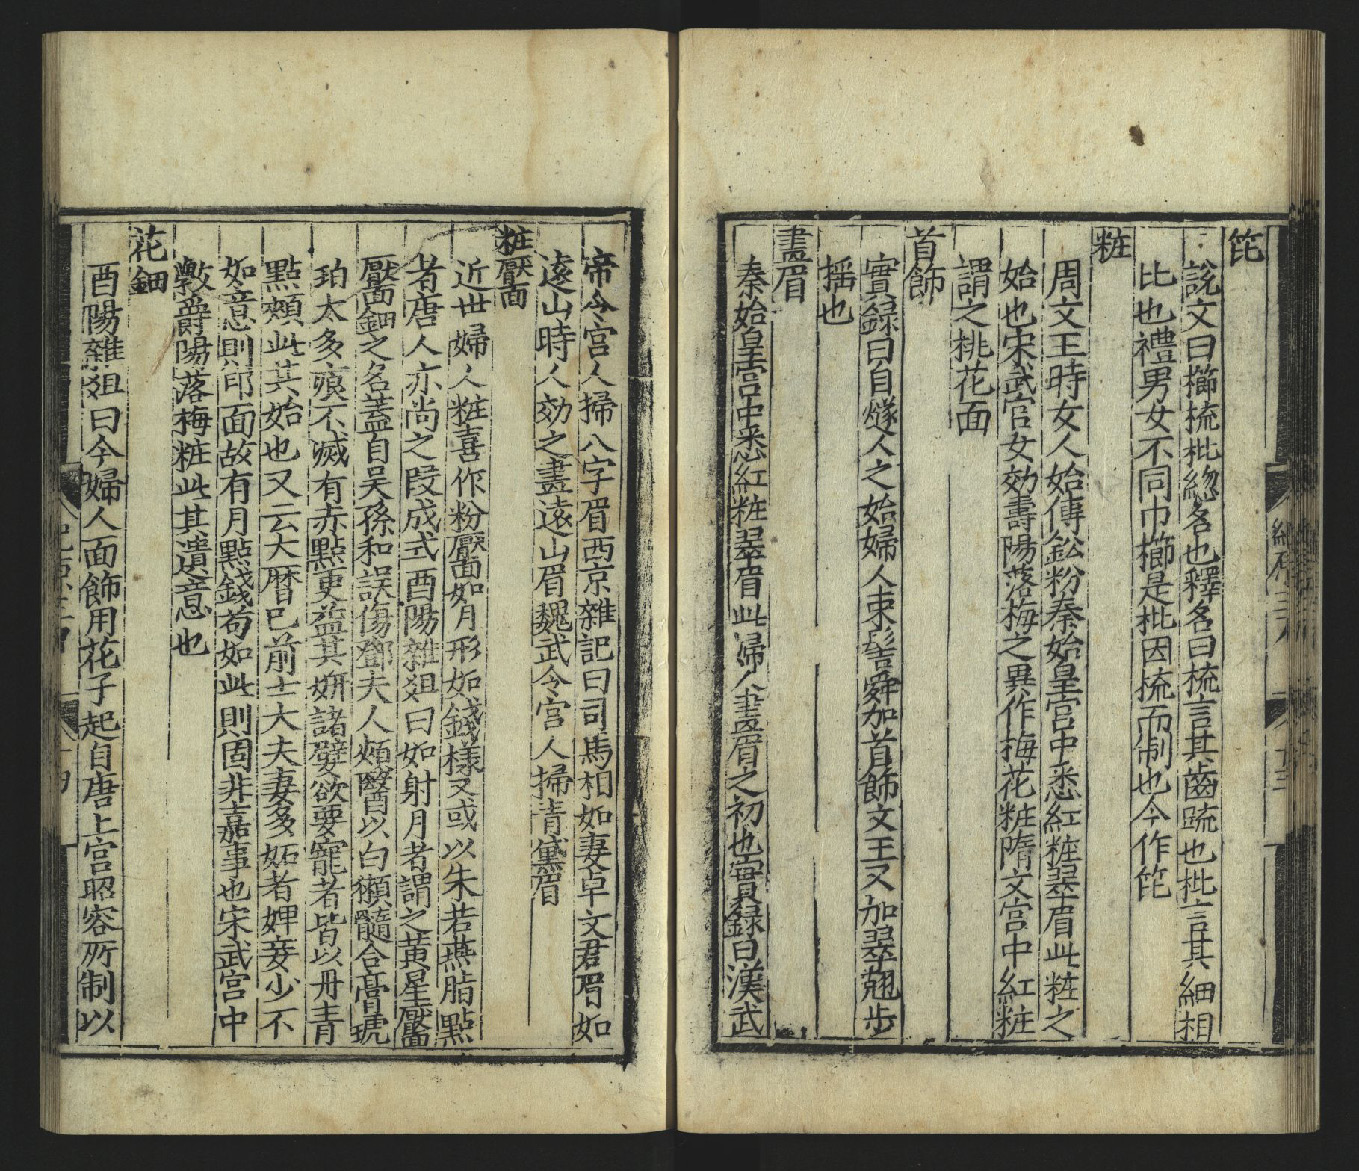 箆
說文曰櫛梳枇緫名也釋名曰梳言其齒踈也枇言其細相
比也禮男女不同巾櫛是枇因梳而制也今作箆
粧
周文王時女人始傳鈆粉秦始皇宮中悉紅粧翠眉此粧之
始也宋武宮女効壽陽落梅之異作梅花粧隋文宮中紅粧
謂之桃花面
首飾
實録曰自燧人之始婦人束髻舜加首飾文王又加翠翹步
揺也
畫眉
秦始皇宮中悉紅粧翠眉此婦人畫眉之初也實録曰漢武
帝令宮人掃八字眉西京雜記曰司馬相如妻卓文君眉如
遠山時人効之畫遠山眉魏武令宮人掃青黛眉
粧靨
近世婦人粧喜作粉靨如月形如錢樣又或以朱若燕脂點
者唐人亦尚之段成式酉陽雜俎曰如射月者謂之黃星靨
靨鈿之名蓋自吳孫和誤傷鄧夫人頰醫以白獺髓合膏琥
珀太多痕不滅有赤點更益其妍諸嬖欲要寵者皆以丹青
點頰此其始也又云大曆已前士大夫妻多妬者婢妾少不
如意則印面故有月點錢苟如此則固非嘉事也宋武宮中
斆爵陽落梅粧此其遺意也
花鈿
酉陽雜俎曰今婦人面飾用花子起自唐上官昭容所制以